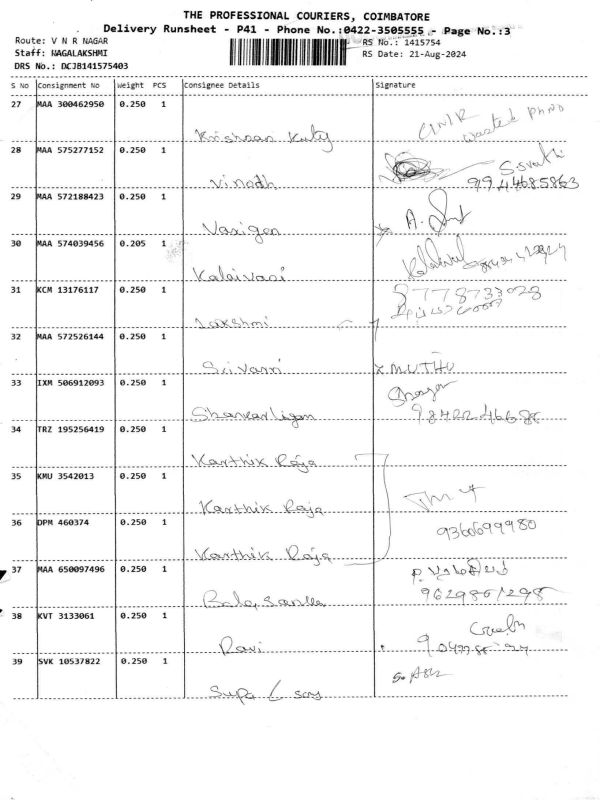 THE PROFESSIONAL COURIERS, COIMBATORE
Delivery Runsheet - P41 - Phone No.:0422-3505555 - Page No.:3
Route: V N R NAGAR
RS No.: 1415754
Staff: NAGALAKSHMI
RS Date: 21-Aug-2024
DRS No.: DCJB141575403
S No Consignment No Weight PCS Consignee Details Signature
27 MAA 300462950 0.250 1
Krishnan Kutty
28 MAA 575277152 0.250 1
Vinodh 9944685863
29 MAA 572188423 0.250 1
Varigon A.
30 MAA 574039456 0.205 1
Kalaivani Kalaivani
31 KCM 13176117 0.250 1 8778733028
Lakshmi
32 MAA 572526144 0.250 1
Srivani x MUTHU
33 IXM 506912093 0.250 1
Shankarligam 9842246688
34 TRZ 195256419 0.250 1
Karthik Raja
35 KMU 3542013 0.250 1
Karthik Raja
36 DPM 460374 0.250 1 9360699980
Karthik Raja
37 MAA 650097496 0.250 1
9629861298
38 KVT 3133061 0.250 1
Ravi
39 SVK 10537822 0.250 1